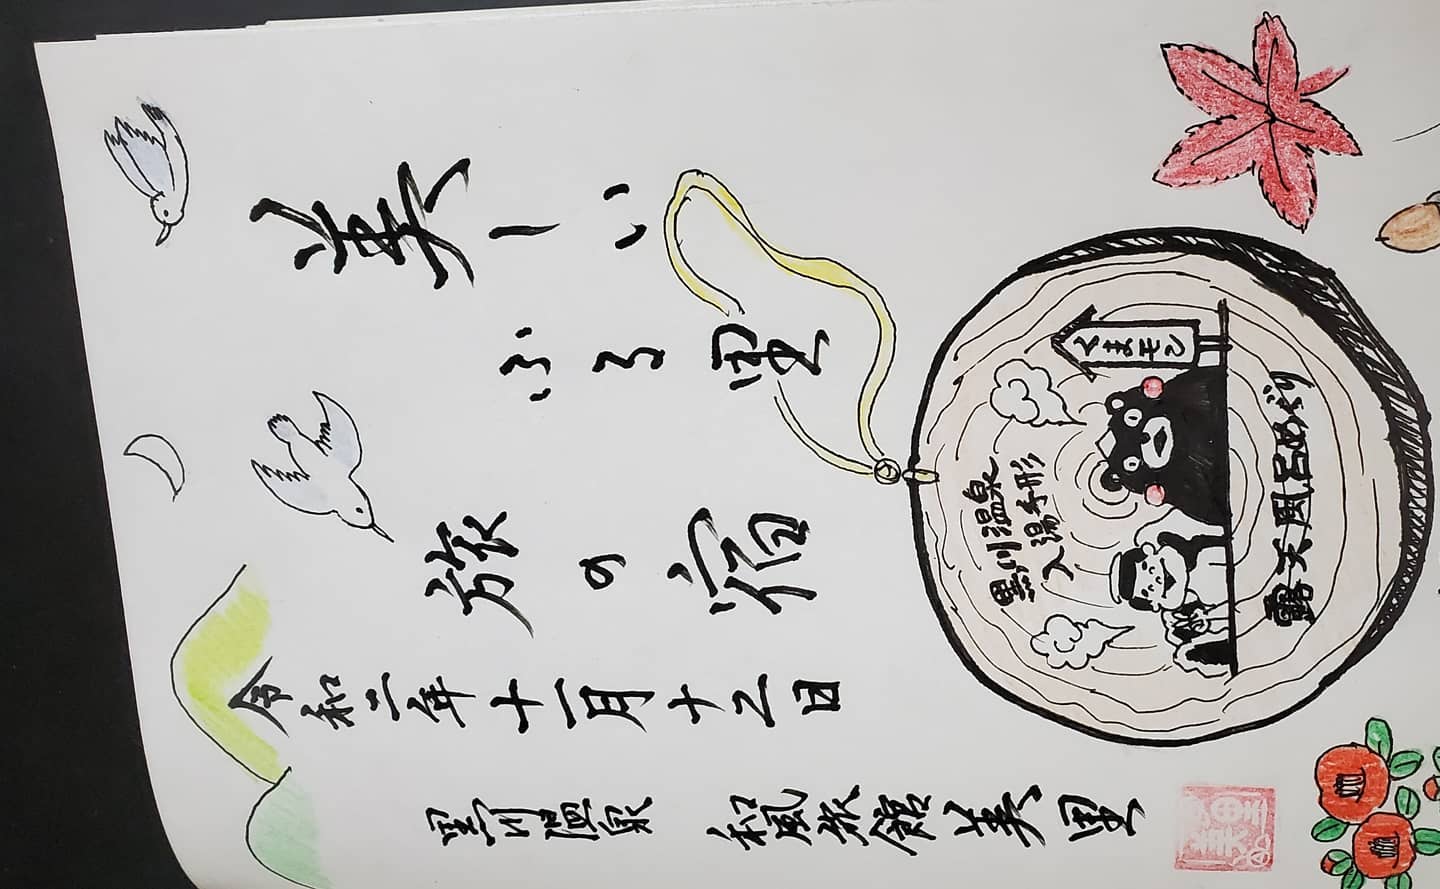 美しい
ふる里
旅の宿
令和二年十一月十二日
黒川温泉 和風旅館美里
黒川温泉
入湯手形
くまモン
露天風呂めぐり